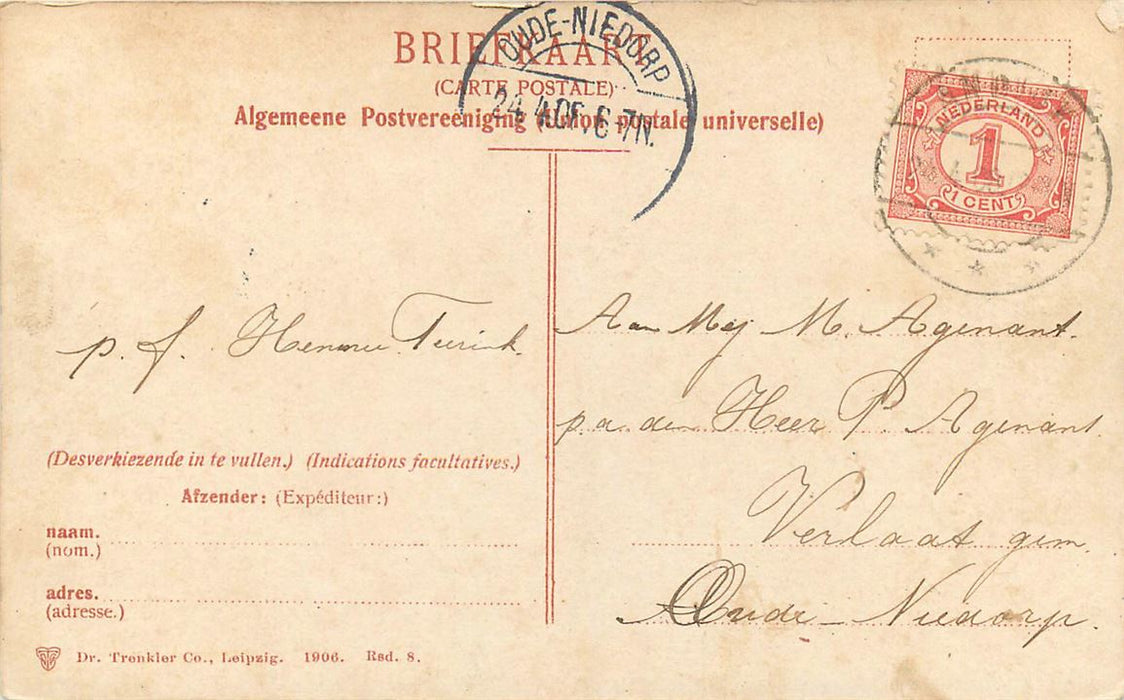 BRIEFKAART
(CARTE POSTALE)
Algemeene Postvereeniging (Union postale universelle)
OUDE-NIEDORP
6-7N.
NEDERLAND
1
1 CENT
p. f. Hennie Teerink.
Aan Mej M. Agenant.
p.a. den Heer P. Agenant.
Verlaat gem.
Oude-Niedorp.
(Desverkiezende in te vullen.) (Indications facultatives.)
Afzender: (Expéditeur:)
naam.
(nom.)
adres.
(adresse.)
Dr. Trenkler Co., Leipzig. 1906. Rsd. 8.